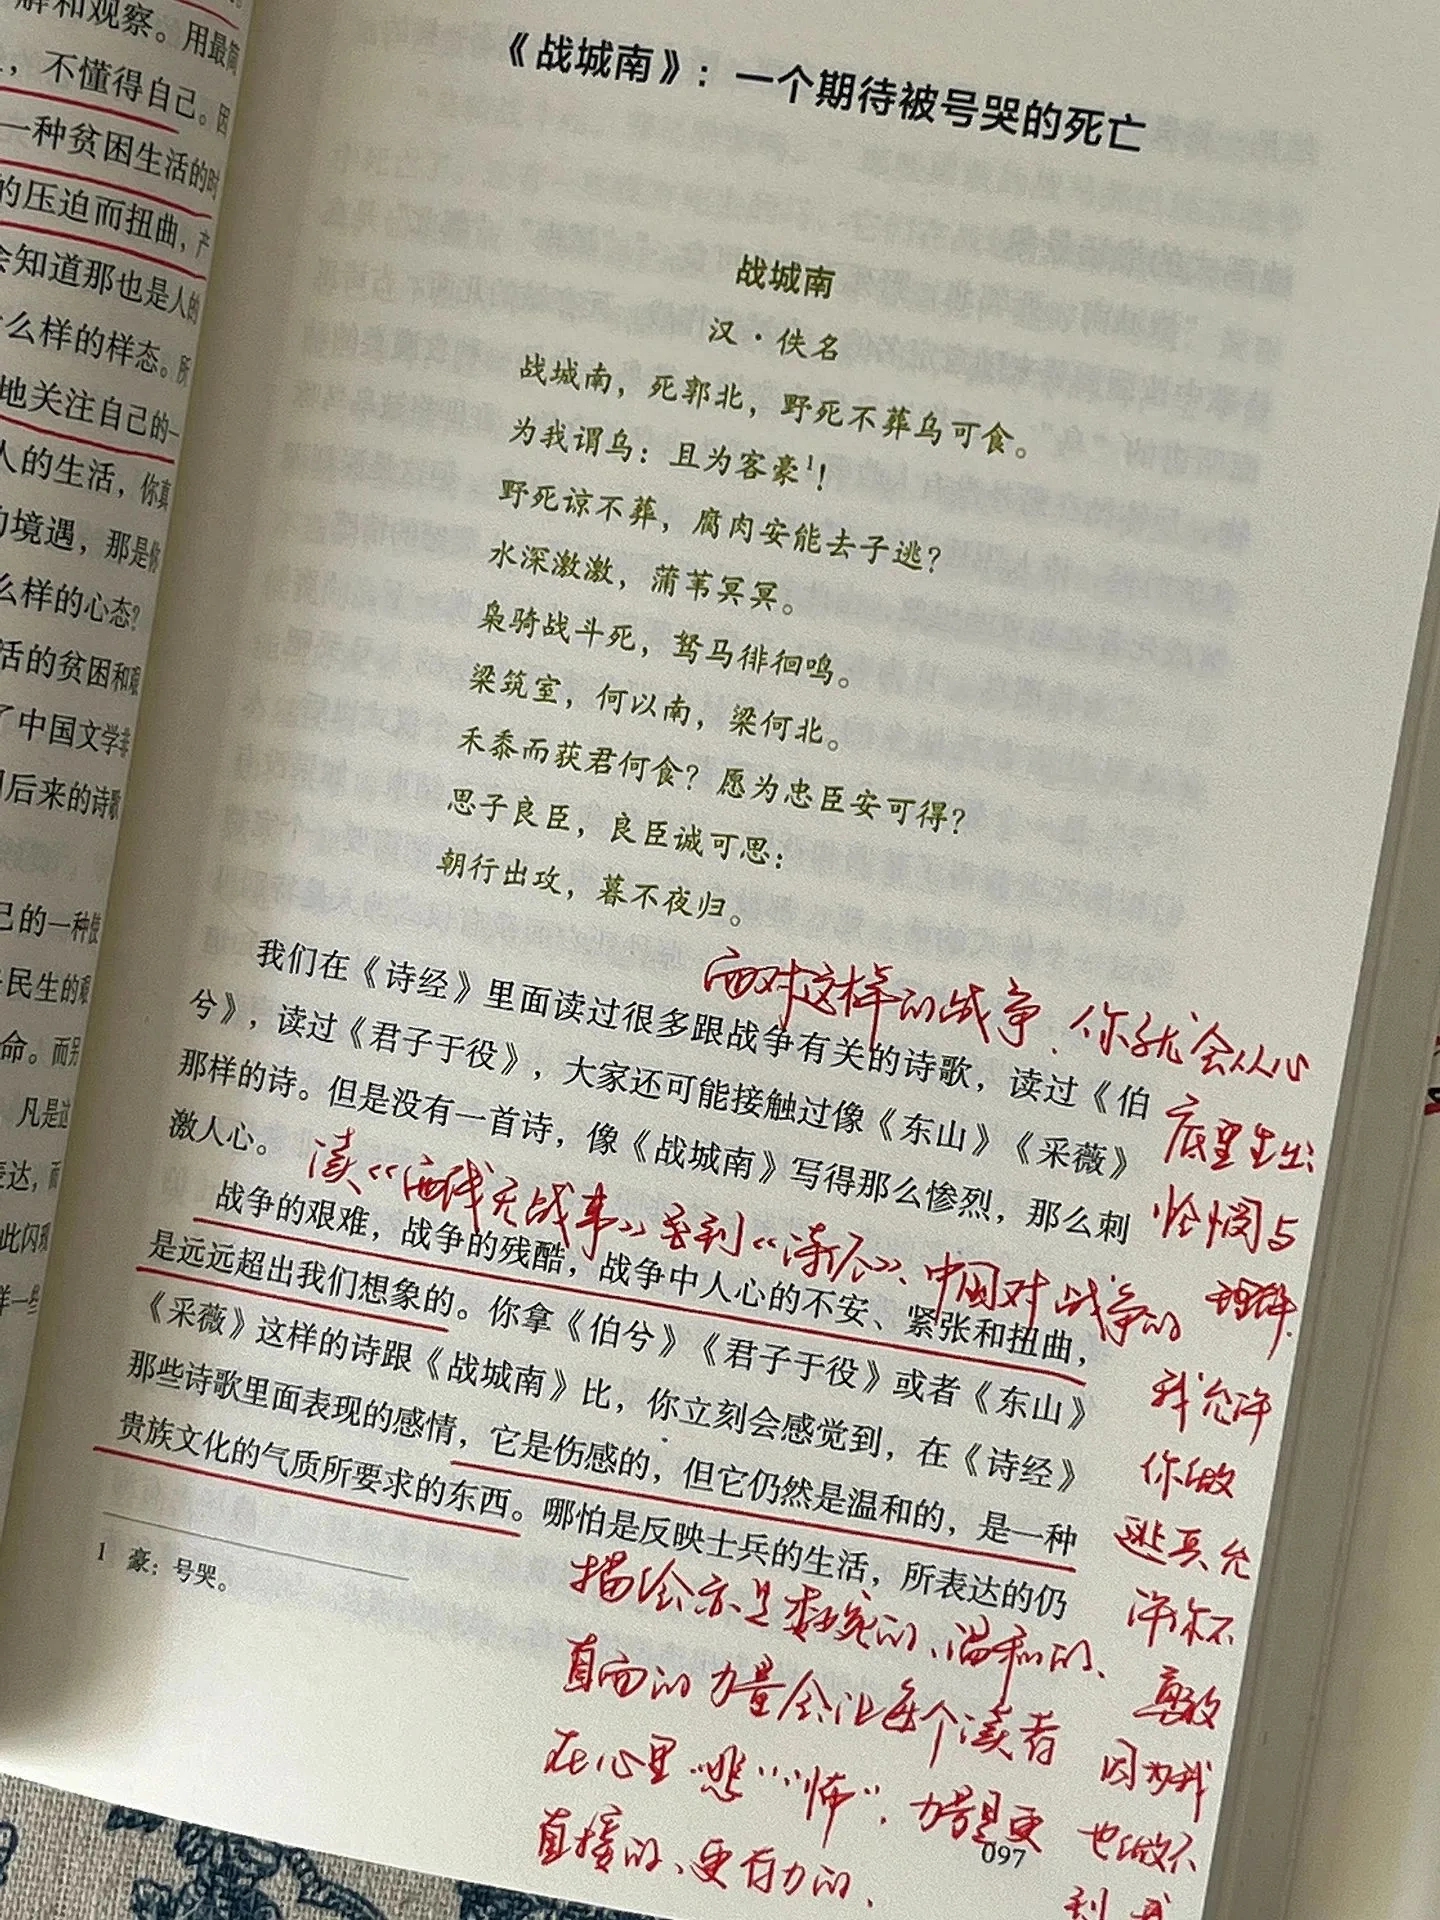 解和观察。用最简
，不懂得自己。因
一种贫困生活的时
的压迫而扭曲，产
会知道那也是人的
什么样的样态。所
地关注自己的一
人的生活，你真
的境遇，那是你
么样的心态？
活的贫困和艰
了中国文学非
后来的诗歌
己的一种
民生的艰
命。而别
，凡是这
表达，而
此闪现
样一些
《战城南》：一个期待被号哭的死亡
战城南
汉·佚名
战城南，死郭北，野死不葬乌可食。
为我谓乌：且为客豪1！
野死谅不葬，腐肉安能去子逃？
水深激激，蒲苇冥冥。
枭骑战斗死，驽马徘徊鸣。
梁筑室，何以南，梁何北。
禾黍而获君何食？愿为忠臣安可得？
思子良臣，良臣诚可思：
朝行出攻，暮不夜归。
我们在《诗经》里面读过很多跟战争有关的诗歌，读过《伯
兮》，读过《君子于役》，大家还可能接触过像《东山》《采薇》
那样的诗。但是没有一首诗，像《战城南》写得那么惨烈，那么刺
激人心。
战争的艰难，战争的残酷，战争中人心的不安、紧张和扭曲，
是远远超出我们想象的。你拿《伯兮》《君子于役》或者《东山》
《采薇》这样的诗跟《战城南》比，你立刻会感觉到，在《诗经》
那些诗歌里面表现的感情，它是伤感的，但它仍然是温和的，是一种
贵族文化的气质所要求的东西。哪怕是反映士兵的生活，所表达的仍
1 豪：号哭。
097
面对这样的战争，你就会从心
底里生出
怜悯与
理解。
我允许
你做
逃兵，允
许你不
勇敢
因为我
也做不
到 我
读《西线无战事》 到《 》、中国对战争的
描绘亦是 的、温和的、
直面的力量会让每个读者
在心里“悲”“怖”，力量是更
直接的、更有力的，